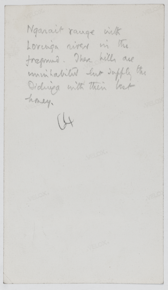 Ngwait range with
Lorenga river in the
foreground. These hills are
uninhabited but supply the
with their best
honey.